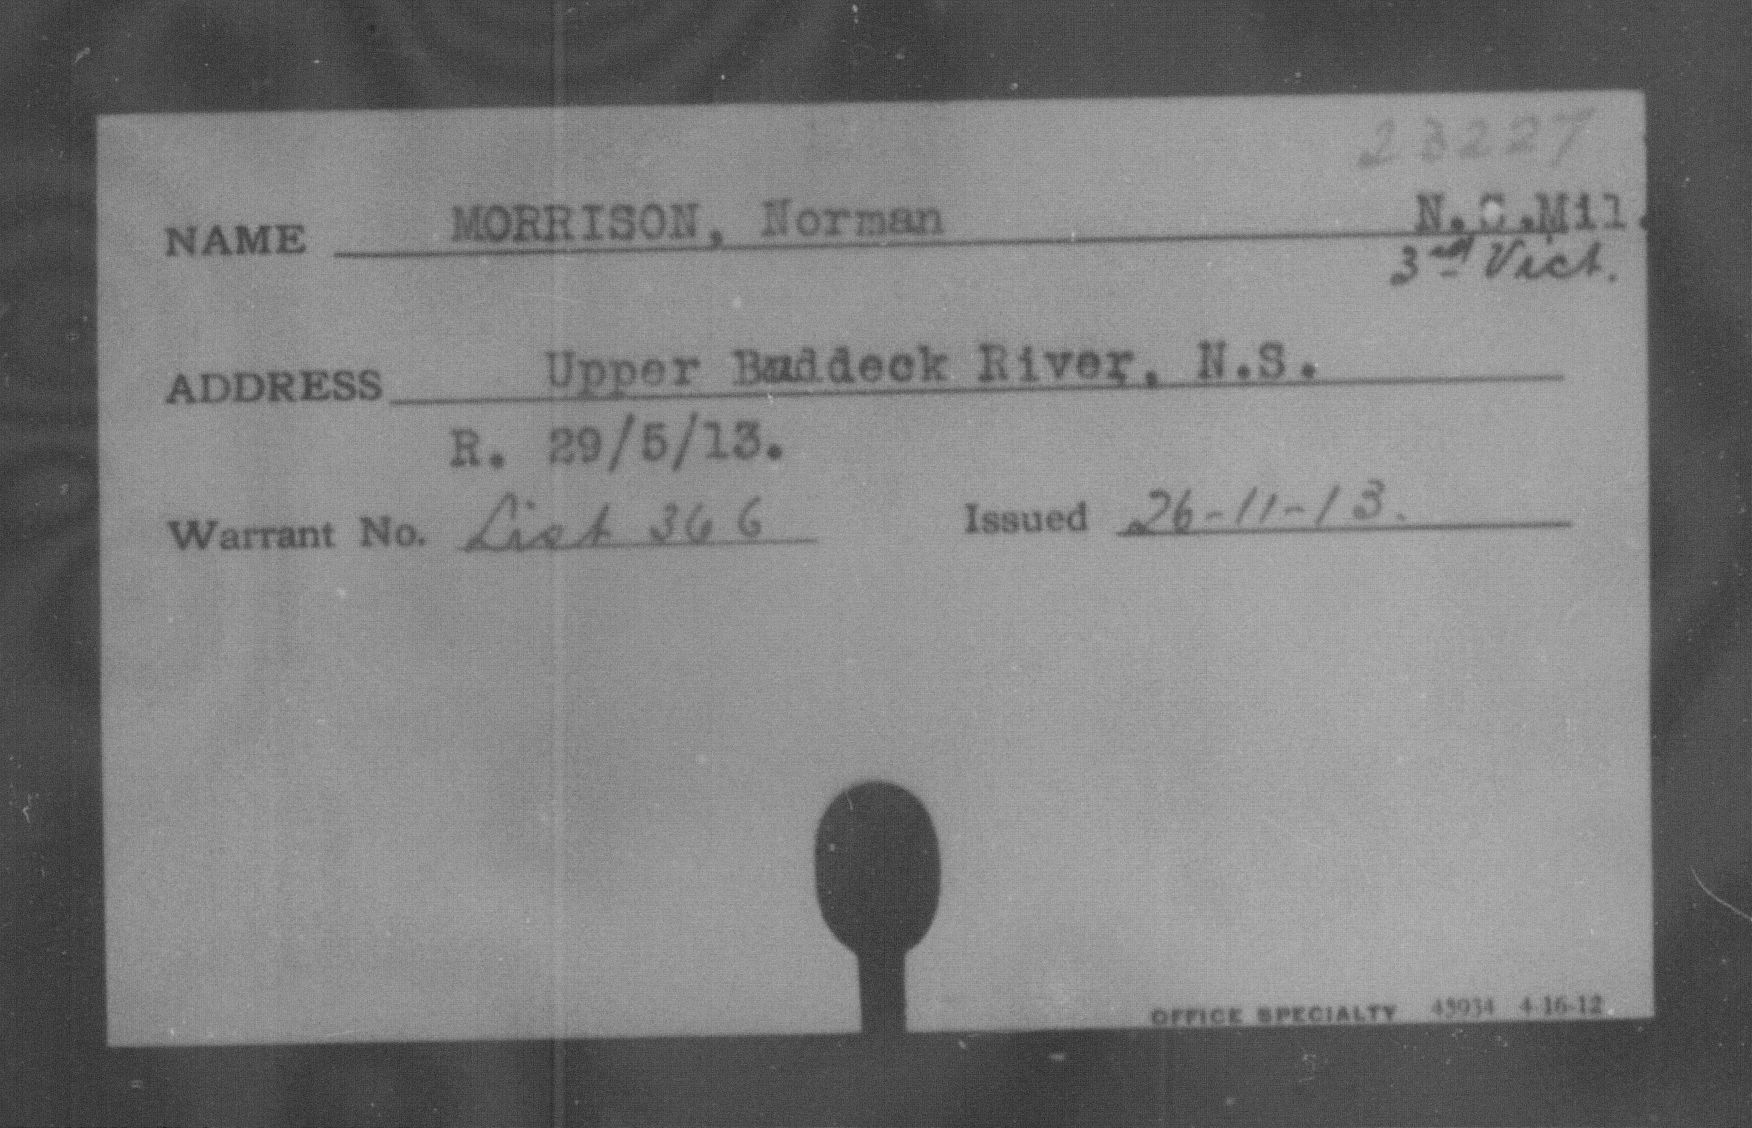 23227
NAME MORRISON, Norman N.S.Mil.
3rd Vict.
ADDRESS Upper Baddeck River, N.S.
R. 29/5/13.
Warrant No. List 366 Issued 26-11-13.
OFFICE SPECIALTY 43934 4-16-12